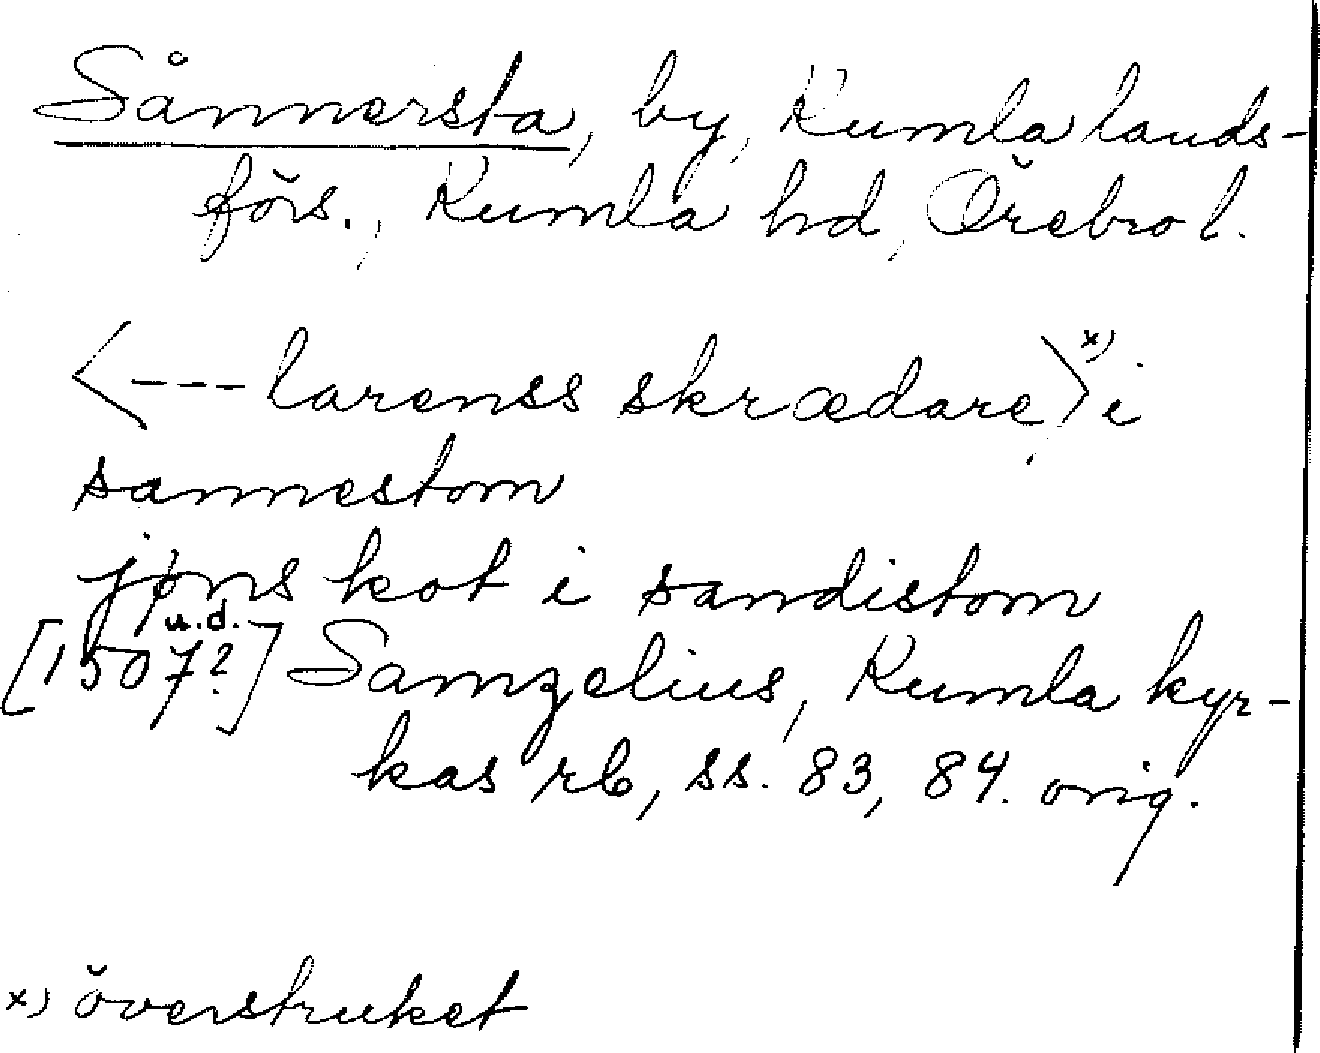 Sånnersta, by, Kumla lands-
förs., Kumla hd, Örebro l.
<---larenss skrædare>x) i
sannestom
jøns kot i sandistom
u.d.
[1507?] Samzelius, Kumla kyr-
kas rb, ss. 83, 84. orig.
x) överstruket